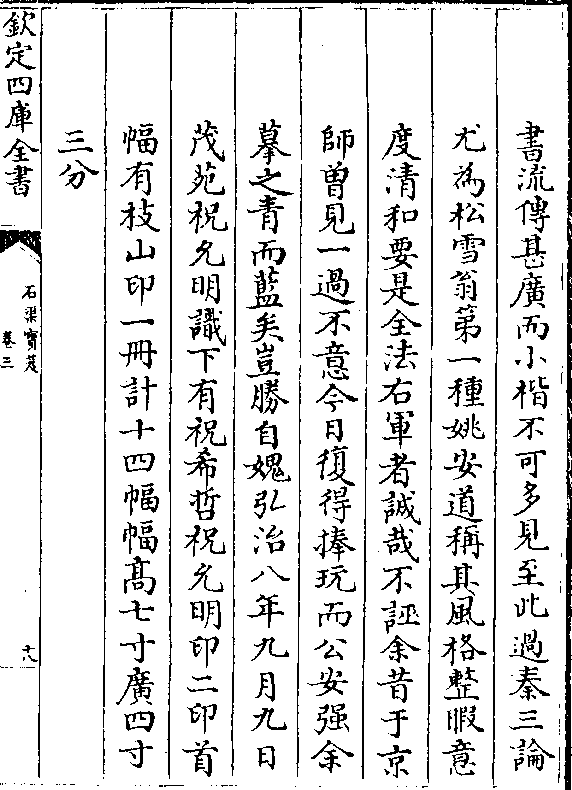 書流傳甚廣而小楷不可多見至此過秦三論
尤為松雪翁第一種姚安道稱其風格整暇意
度清和要是全法右軍者誠哉不誣余昔于京
師曽見一過不意今日復得捧玩而公安强余
摹之青而藍矣豈勝自媿弘治八年九月九日
茂苑祝允明識下有祝希哲祝允明印二印首
幅有枝山印一冊計十四幅幅髙七寸廣四寸
三分
欽定四庫全書
石渠寶笈
卷三
十八